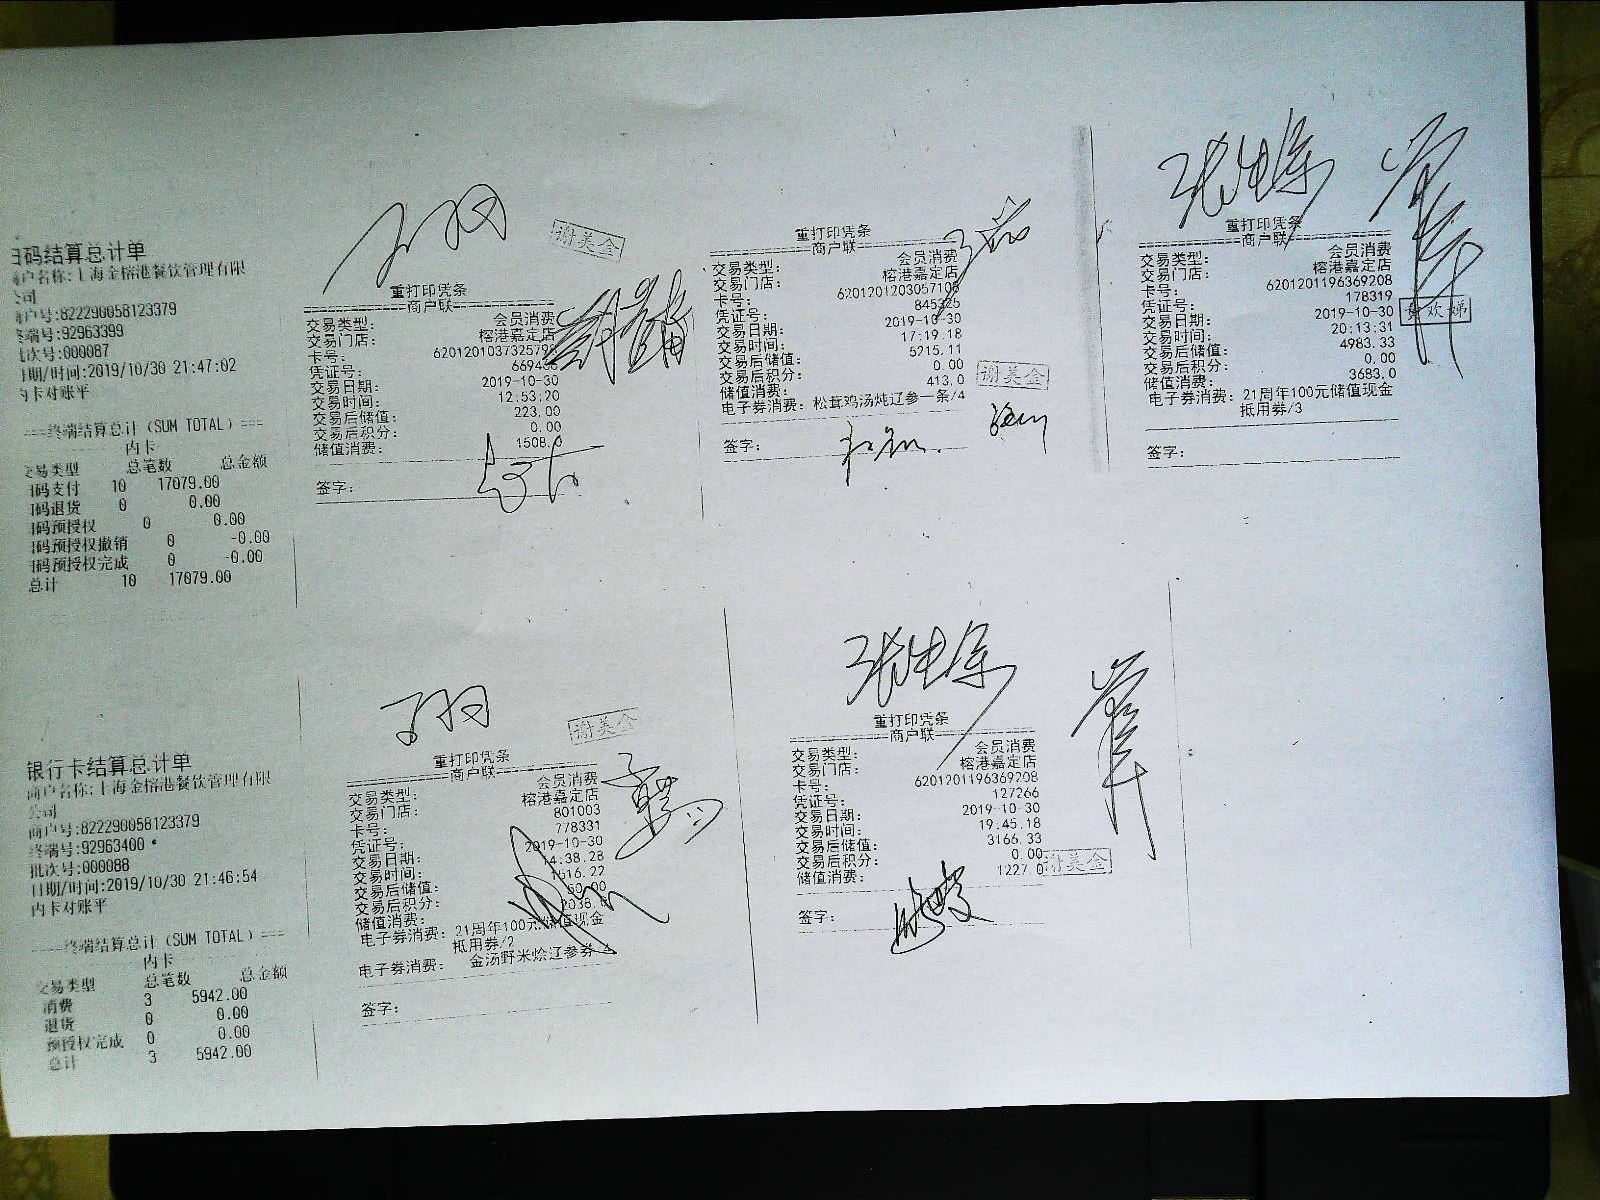 扫码结算总计单
商户名称:上海金榕港餐饮管理有限
公司
商户号:822290058123379
终端号:92963399
批次号:000087
日期/时间:2019/10/30 21:47:02
内卡对账平
===终端结算总计(SUM TOTAL)===
内卡
交易类型 总笔数 总金额
扫码支付 10 17079.00
扫码退货 0 0.00
扫码预授权 0 0.00
扫码预授权撤销 0 -0.00
扫码预授权完成 0 -0.00
总计 10 17079.00
谢美金
重打印凭条
商户联
交易类型: 会员消费
交易门店: 榕港嘉定店
卡号:
凭证号:
交易日期: 2019-10-30
交易时间: 12:53:20
交易后储值: 223.00
交易后积分: 0.00
储值消费: 1508.0
签字:
重打印凭条
商户联
交易类型: 会员消费
交易门店: 榕港嘉定店
卡号: 6201201203057108
凭证号: 845325
交易日期: 2019-10-30
交易时间: 17:19:18
交易后储值: 5215.11
交易后积分: 0.00
储值消费: 413.0
电子券消费: 松茸鸡汤炖辽参一条/4
谢美金
签字:
张生保
重打印凭条
商户联
交易类型: 会员消费
交易门店: 榕港嘉定店
卡号: 6201201196369208
凭证号: 178319
交易日期: 2019-10-30
交易时间: 20:13:31
交易后储值: 4983.33
交易后积分: 0.00
储值消费: 3683.0
电子券消费: 21周年100元储值现金
抵用券/3
签字:
银行卡结算总计单
商户名称:上海金榕港餐饮管理有限
公司
商户号:822290058123379
终端号:92963400
批次号:000088
日期/时间:2019/10/30 21:46:54
内卡对账平
终端结算总计(SUM TOTAL)===
内卡
交易类型 总笔数 总金额
消费 3 5942.00
退货 0 0.00
预授权完成 0 0.00
总计 3 5942.00
谢美金
重打印凭条
商户联
交易类型: 会员消费
交易门店: 榕港嘉定店
卡号: 801003
凭证号: 778331
交易日期: 2019-10-30
交易时间: 14:38:28
交易后储值:
交易后积分:
储值消费:
电子券消费: 21周年100元储值现金
抵用券/2
电子券消费: 金汤野米烩辽参券
签字:
张生保
重打印凭条
商户联
交易类型: 会员消费
交易门店: 榕港嘉定店
卡号: 6201201196369208
凭证号: 127266
交易日期: 2019-10-30
交易时间: 19:45:18
交易后储值: 3166.33
交易后积分: 0.00
储值消费: 1227.0
谢美金
签字: